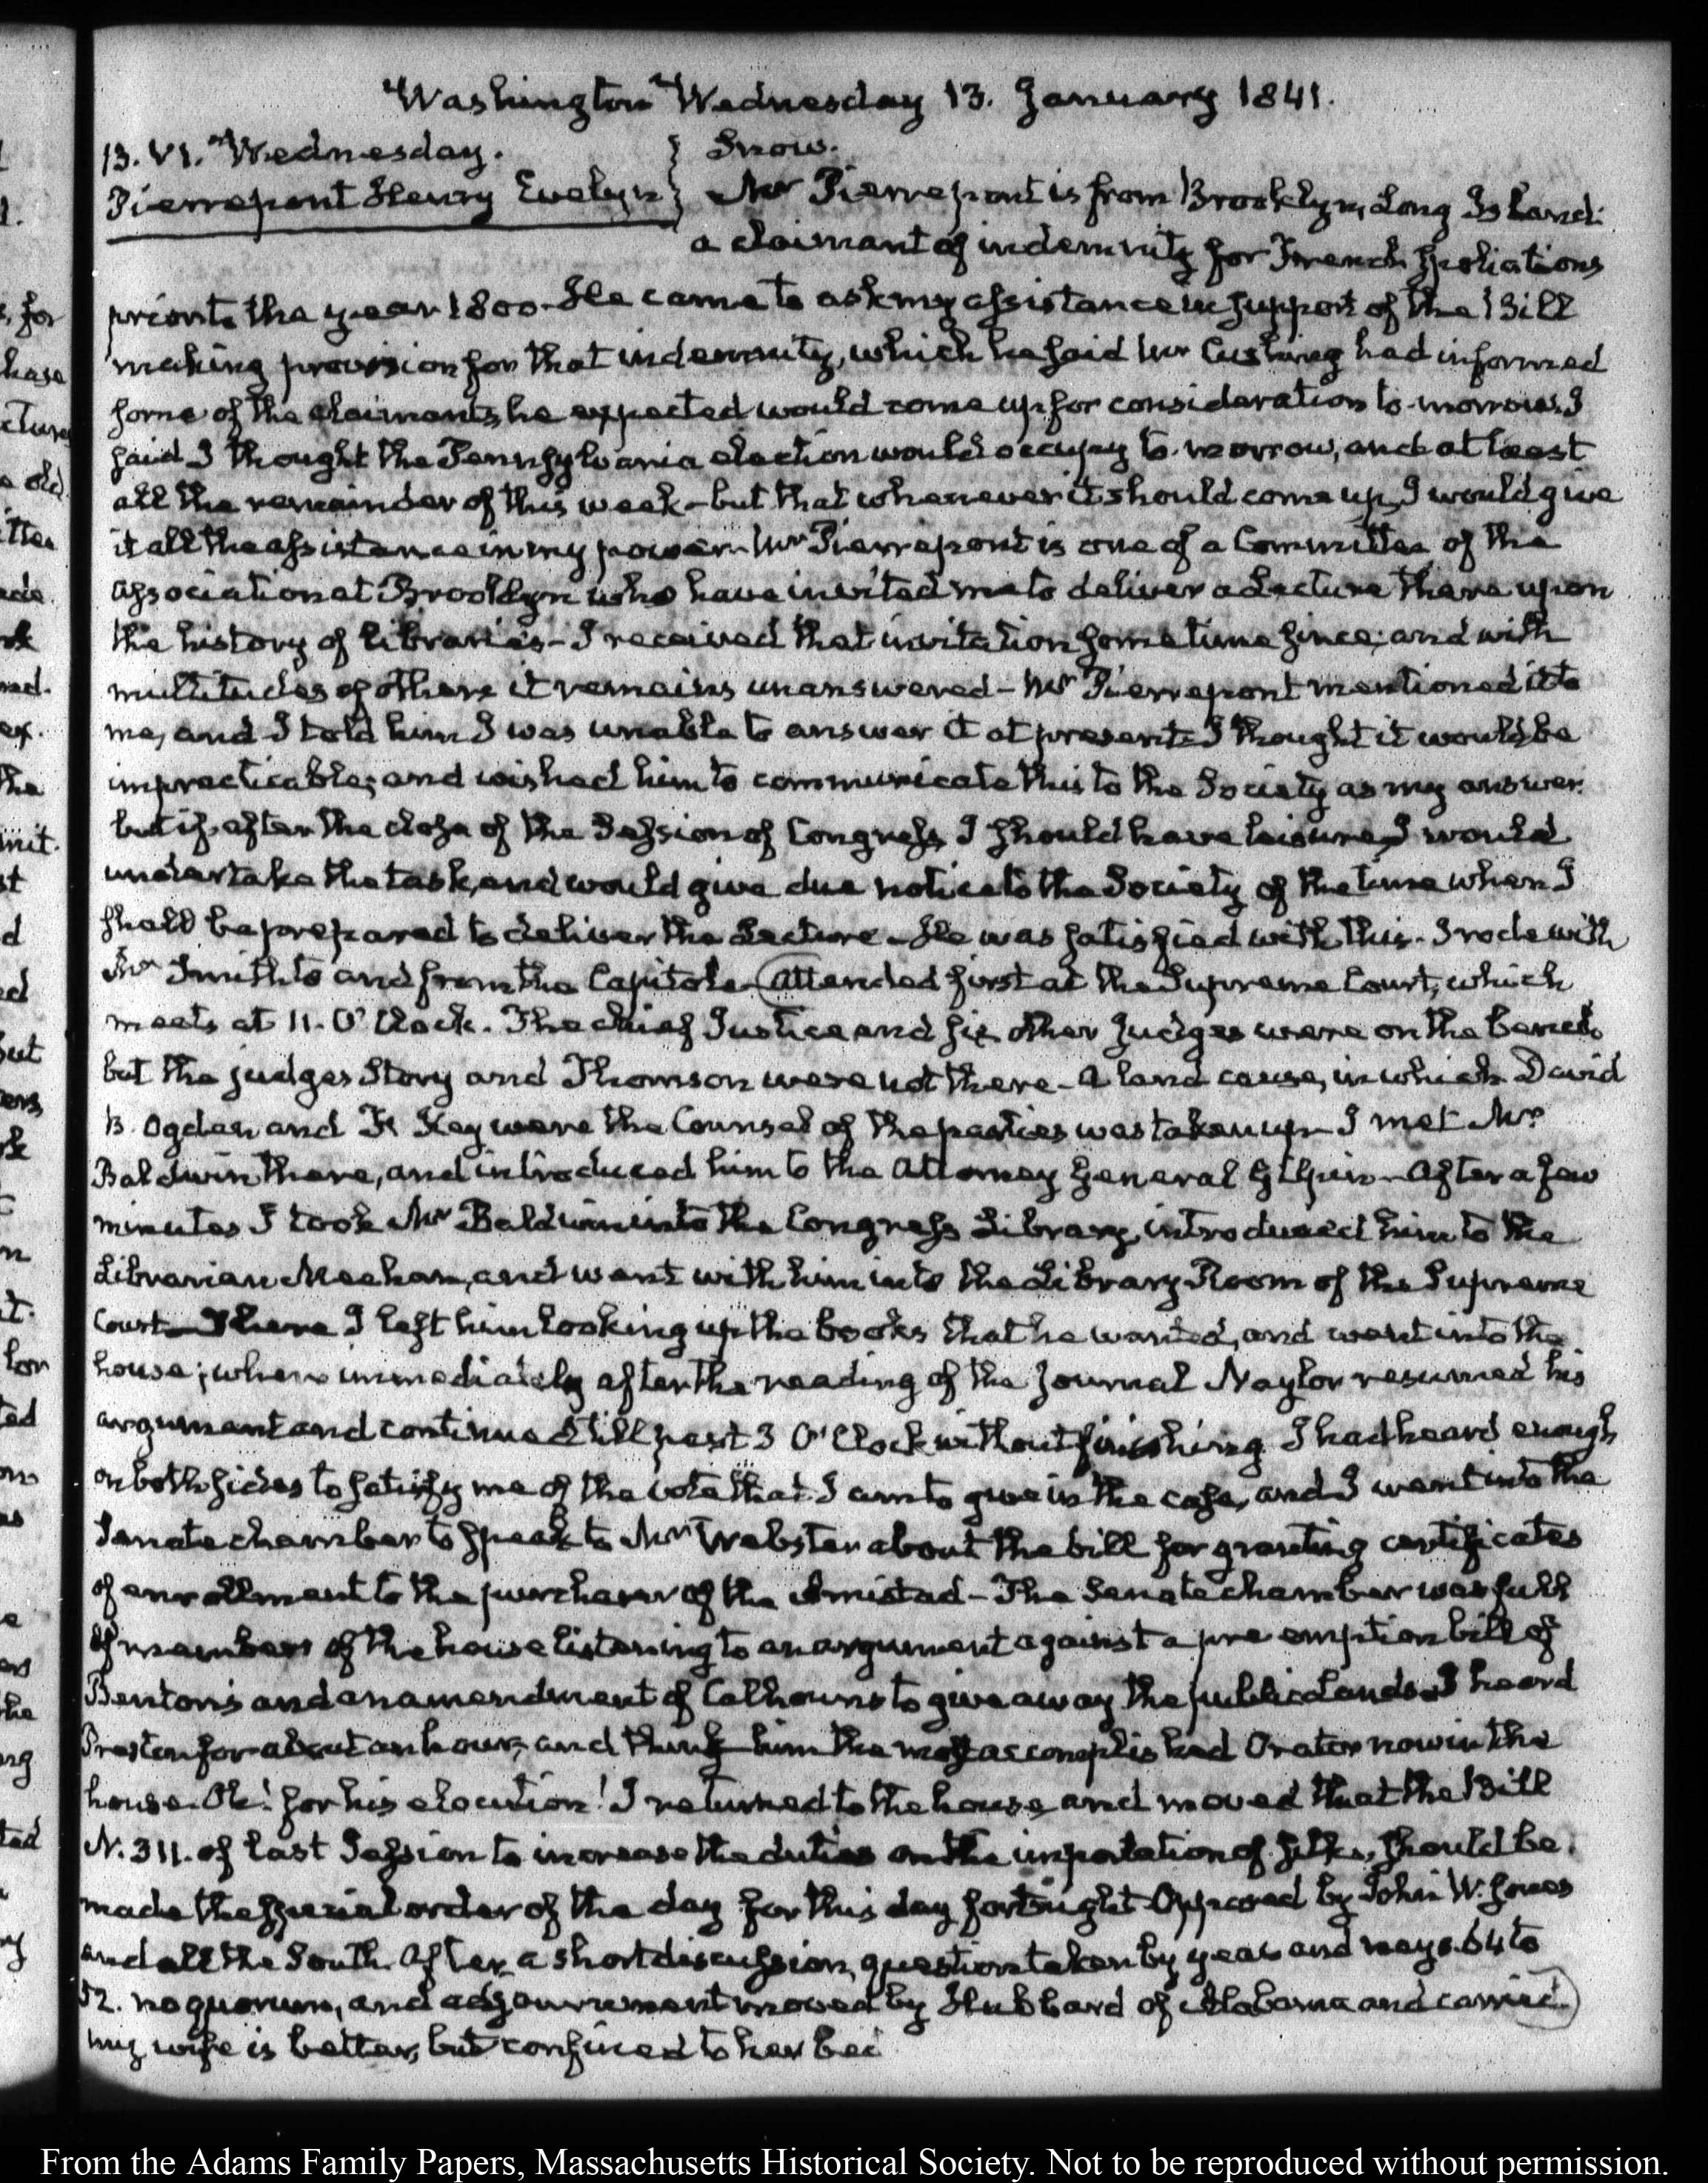 Washington Wednesday 13. January 1841.
13. VI. Wednesday.
Pierrepont Henry Evelyn
Snow.
Mr Pierrepont is from Brooklyn, Long Island:
a claimant of indemnity for French Spoliations
prior to the year 1800 - He came to ask my assistance in support of the Bill
making provision for that indemnity, which he said Mr Cushing had informed
some of the claimants, he expected would come up for consideration to-morrow. I
said I thought the Pennsylvania election would occupy to-morrow, and at least
all the remainder of this week - but that whenever it should come up, I would give
it all the assistance in my power - Mr Pierrepont is one of a Committee of the
association at Brooklyn who have invited me to deliver a Lecture there upon
the history of libraries - I received that invitation some time since; and with
multitudes of others it remains unanswered - Mr Pierrepont mentioned it to
me, and I told him I was unable to answer it at present - I thought it would be
impracticable; and wished him to communicate this to the Society as my answer.
but if after the close of the Session of Congress I should have leisure, I would
undertake the task, and would give due notice to the Society of the time when I
shall be prepared to deliver the Lecture - He was satisfied with this - I rode with
Mr Smith to and from the Capitol - Attended first at the Supreme Court, which
meets at 11. O'Clock. The chief Justice and six other Judges were on the bench
but the judges Story and Thomson were not there - A land cause, in which David
B. Ogden and Fr Key were the Counsel of the parties was taken up - I met Mr
Baldwin there, and introduced him to the Attorney General Gilpin - After a few
minutes I took Mr Baldwin into the Congress Library, introduced him to the
Librarian Meehan, and went with him into the Library Room of the Supreme
Court - There I left him looking up the books that he wanted, and went into the
house; where immediately after the reading of the Journal Naylor resumed his
argument and continued till past 3 O'Clock without finishing. I had heard enough
on both sides to satisfy me of the vote that I am to give in the case, and I went into the
Senate chamber to speak to Mr Webster about the bill for granting certificates
of enrollment to the purchaser of the Amistad - The Senate chamber was full
of members of the house listening to an argument against a pre emption bill of
Benton's and an amendment of Calhoun's to give away the public Lands - I heard
Preston for about an hour, and think him the most accomplished Orator now in the
house. Oh! for his elocution! I returned to the house, and moved that the Bill
N. 311. of last Session to increase the duties on the importation of silks, should be
made the special order of the day for this day fortnight - Opposed by John W. Jones
and all the South. After a short discussion, question taken by yeas and nays. 64 to
52. no quorum, and adjournment moved by Hubbard of Alabama and carried.
my wife is better, but confined to her bed
From the Adams Family Papers, Massachusetts Historical Society. Not to be reproduced without permission.